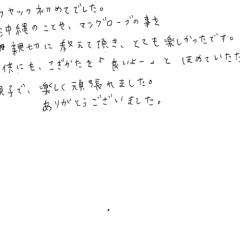 カヤック初めてでした。
沖縄のことや、マングローブの事を
親切に教えて頂き、とても楽しかったです。
供にも、こぎかたを「良いよー」と ほめていただ
親子で、楽しく頑張れました。
ありがとうございました。